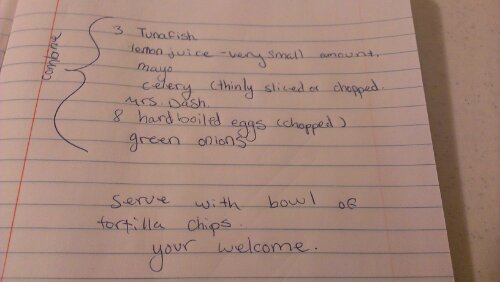 combine
3 Tunafish
lemon juice - very small amount.
mayo
celery (thinly sliced or chopped.
Mrs. Dash.
8 hardboiled eggs (chopped)
green onions
Serve with bowl of
tortilla chips.
your welcome.